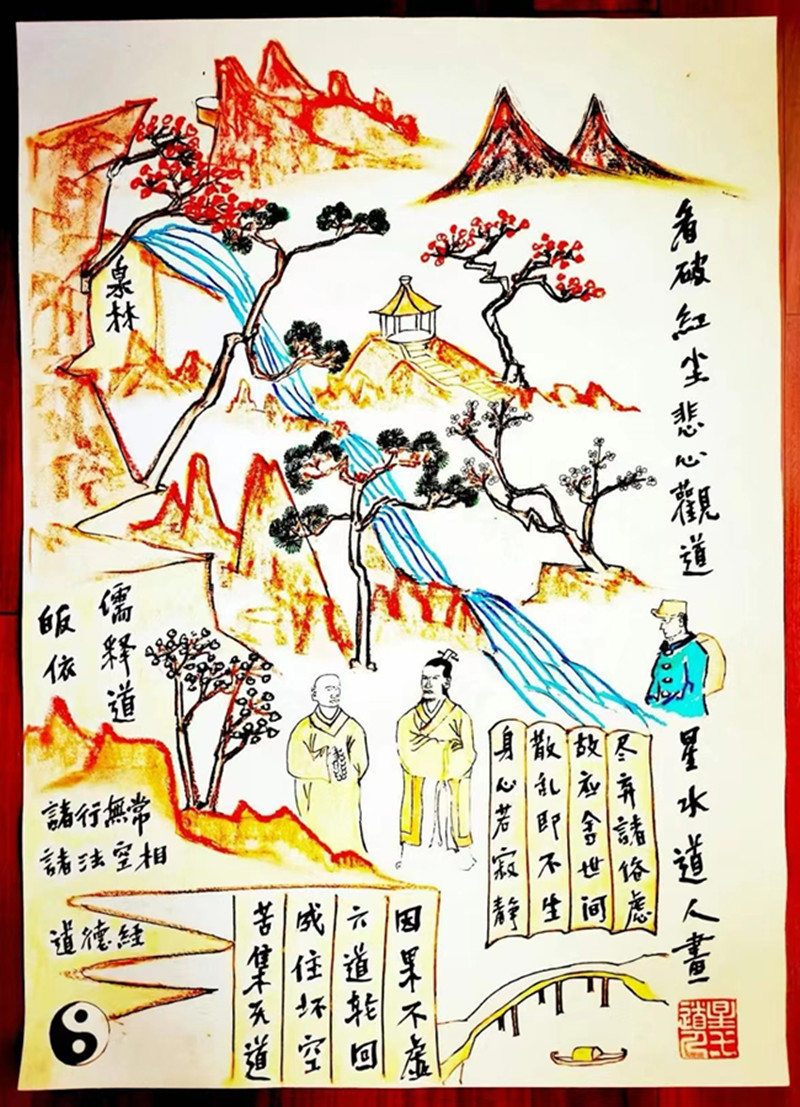 看破紅尘悲心觀道
星水道人畫
泉林
儒释道
皈依
尽弃諸俗慮
故应舍世间
散乱即不生
身心若寂静
諸行無常
諸法空相
道德經
因果不虛
六道轮回
成住坏空
苦集灭道